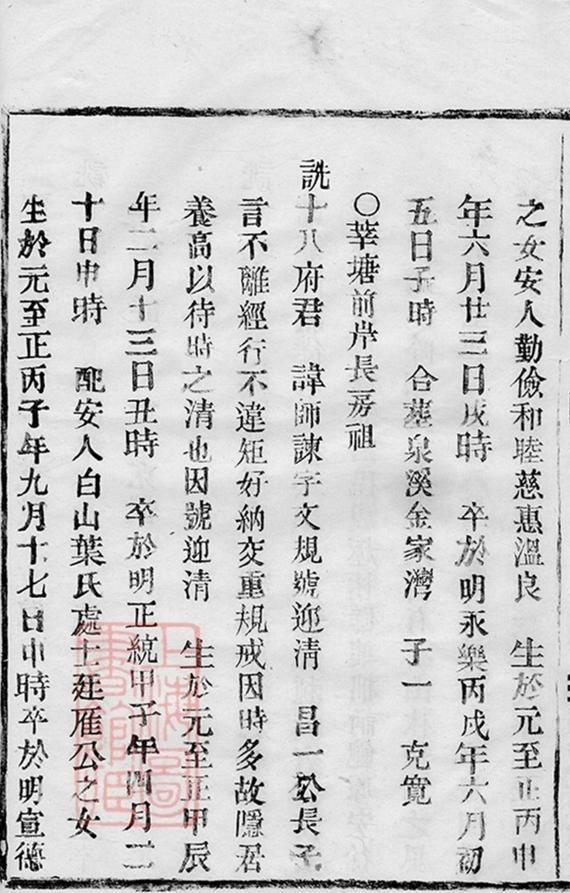 之女安人勤儉和睦慈惠溫良　生於元至正丙申
年六月廿三日戌時　卒於明永樂丙戌年六月初
五日子時　合塟泉溪金家灣　子一　克寬
○莘塘前岸長房祖
詵十八府君　諱師諫字文規號迎清　昌一公長子
言不離經行不違矩好納交重規戒因時多故隱居
養高以待時之清也因號迎清　生於元至正甲辰
年二月十三日丑時　卒於明正統甲子年四月二
十日申時　配安人白山葉氏處士廷雁公之女
生於元至正丙子年九月十七日申時卒於明宣德
上海圖書館藏